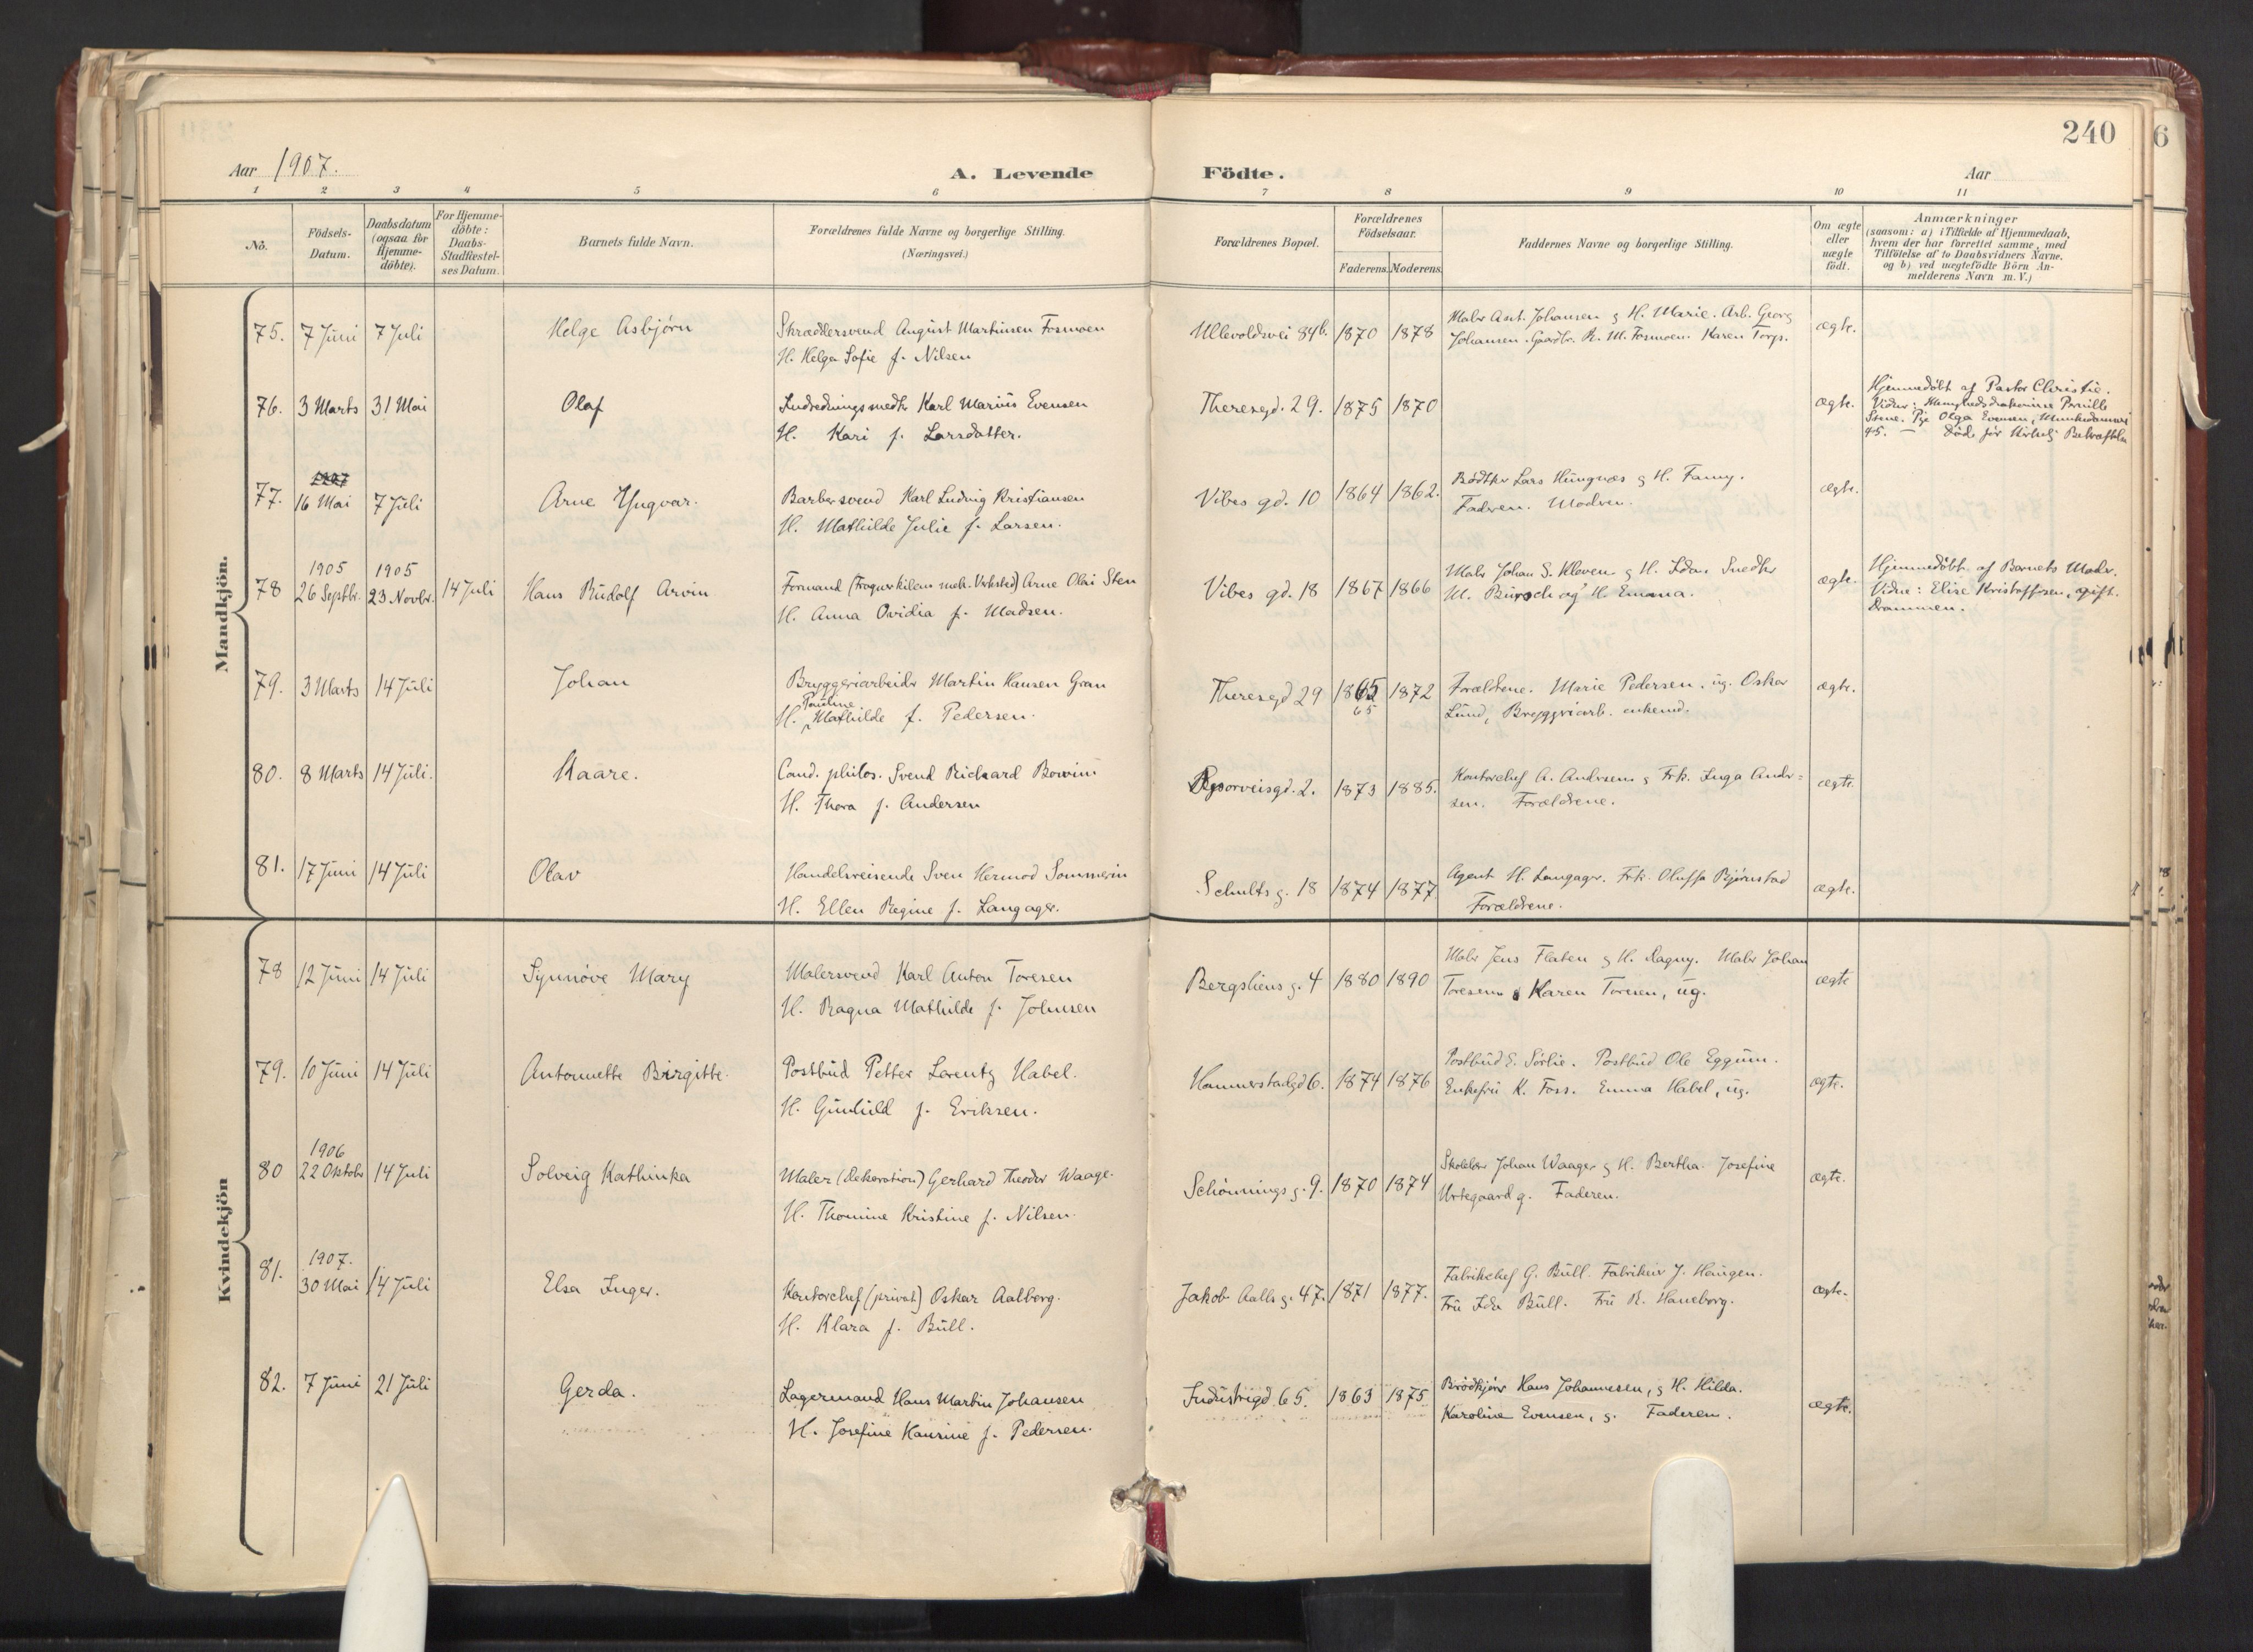 240
6
Aar 1907.
A. Levende Födte.
Aar
1 2 3 4 5 6 7 8 9 10 11
No.
Födsels-
Datum.
Daabsdatum
(ogsaa for
Hjemme-
döbte).
For Hjemme-
döbte:
Daabs-
Stadfæstel-
ses Datum.
Barnets fulde Navn.
Forældrenes fulde Navne og borgerlige Stilling.
(Næringsvei.)
Forældrenes Bopæl.
Forældrenes
Födselsaar.
Faderens. Moderens.
Faddernes Navne og borgerlige Stilling.
Om ægte
eller
uægte
födt.
Anmærkninger
(saasom: a) i Tilfælde af Hjemmedaab,
hvem der har forrettet samme, med
Tilföielse af to Daabsvidners Navne,
og b) ved uægtefödte Börn An-
melderens Navn m. V.)
Mandkjön.
75. 7 Juni 7 Juli Helge Asbjørn
Skræddersvend August Martinsen Fosmoen
H. Helga Sofie f. Nilsen
Ullevoldsvei 84b. 1870 1878
Maler Ant. Johansen g H. Marie. Arb. Georg
Johansen. Gaardbr. R. M. Fosmoen. Karen Torgs.
ægte.
76. 3 Marts 31 Mai Olaf
Indredningssnedker Karl Marius Evensen
H. Kari f. Larsdatter.
Theresegd. 29. 1875 1870
ægte.
Hjemmedøbt af Pastor Christie.
Vidner: Menighedsdiakonisse Pernille
Stene. Pge Olga Evensen, Munkedamsvei
45. — Døde før Kirkelig Bekræftelse
77. 16 Mai 7 Juli Arne Yngvar.
Barbersvend Karl Ludvig Kristiansen
H. Mathilde Julie f. Larsen.
Vibes gd. 10 1864 1862.
Bødtker Lars Hungnæs g H. Fanny.
Faderen. Modren.
ægte.
78 1905 26 Septbr. 1905 23 Novbr. 14 Juli Hans Rudolf Arvin
Formand (Frognerkilens mek. Verksted) Arne Olai Sten
H. Anna Ovidia f. Madsen.
Vibes gd. 18 1867 1866
Maler Johan S. Kleven g H. Ida. Snedker
M. Bursch og H. Emma.
ægte.
Hjemmedøbt af Barnets Moder.
Vidne: Elise Kristoffersen, gift.
Drammen.
79. 3 Marts 14 Juli Johan
Bryggeriarbeider Martin Hansen Gran
Pauline
H. Mathilde f. Pedersen.
Theresegd 29 1865 1872
65
Forældrene. Marie Pedersen, ug. Oskar
Lund, Bryggeriarb. enkemd.
ægte.
80. 8 Marts 14 Juli. Kaare.
Cand. philos. Svend Richard Borvin
H. Thora f. Andersen
1873 1885.
Kontorchef A. Andersen g Frk. Inga Ander=
sen. Forældrene.
ægte.
81. 17 Juni 14 Juli Olav
Handelsreisende Sven Hermod Sommerin
H. Ellen Regine f. Langager.
Schults g. 18 1874 1877
Agent H. Langager. Frk. Oluffa Bjørnstad
Forældrene.
ægte.
Kvindekjön
78 12 Juni 14 Juli Synnöve Mary
Malersvend Karl Anton Toresen
H. Ragna Mathilde f. Johnsen
Bergsliens g. 4 1880 1890
Maler Jens Flaten g H. Dagny. Maler Johan
Toresen g Karen Toresen, ug.
ægte
79. 10 Juni 14 Juli Antonette Birgitte.
Postbud Petter Lorentz Habel.
H. Gunhild f. Eriksen.
Hammerstadgd 6. 1874 1876
Postbud E. Sörlie. Postbud Ole Eggum.
Enkefru K. Foss. Emma Habel, ug.
ægte.
80 1906 22 Oktobr 14 Juli Solveig Kathinka
Maler (dekoration) Gerhard Theodor Waage.
H. Thomine Kristine f. Nilsen.
Schönnings g. 9. 1870 1874
Skolelær Johan Waager g H. Bertha. Josefine
Urtegaard g. Faderen.
ægte.
81. 1907. 30 Mai 14 Juli Elsa Inger.
Kontorchef (privat) Oskar Aalborg.
H. Klara f. Büll.
Jakob Aalls g. 47. 1871 1877.
Fabrikchef G. Büll. Fabrikeier J. Haugen.
Fru Ida Büll. Fru R. Haneborg.
ægte.
82. 7 Juni 21 Juli Gerda.
Lagermand Hans Martin Johansen
H. Josefine Hansine f. Pedersen.
Industrigd. 65. 1863 1875
Brödkjörer Hans Johannesen, g H. Hilda.
Karoline Evensen, g. Faderen.
ægte.